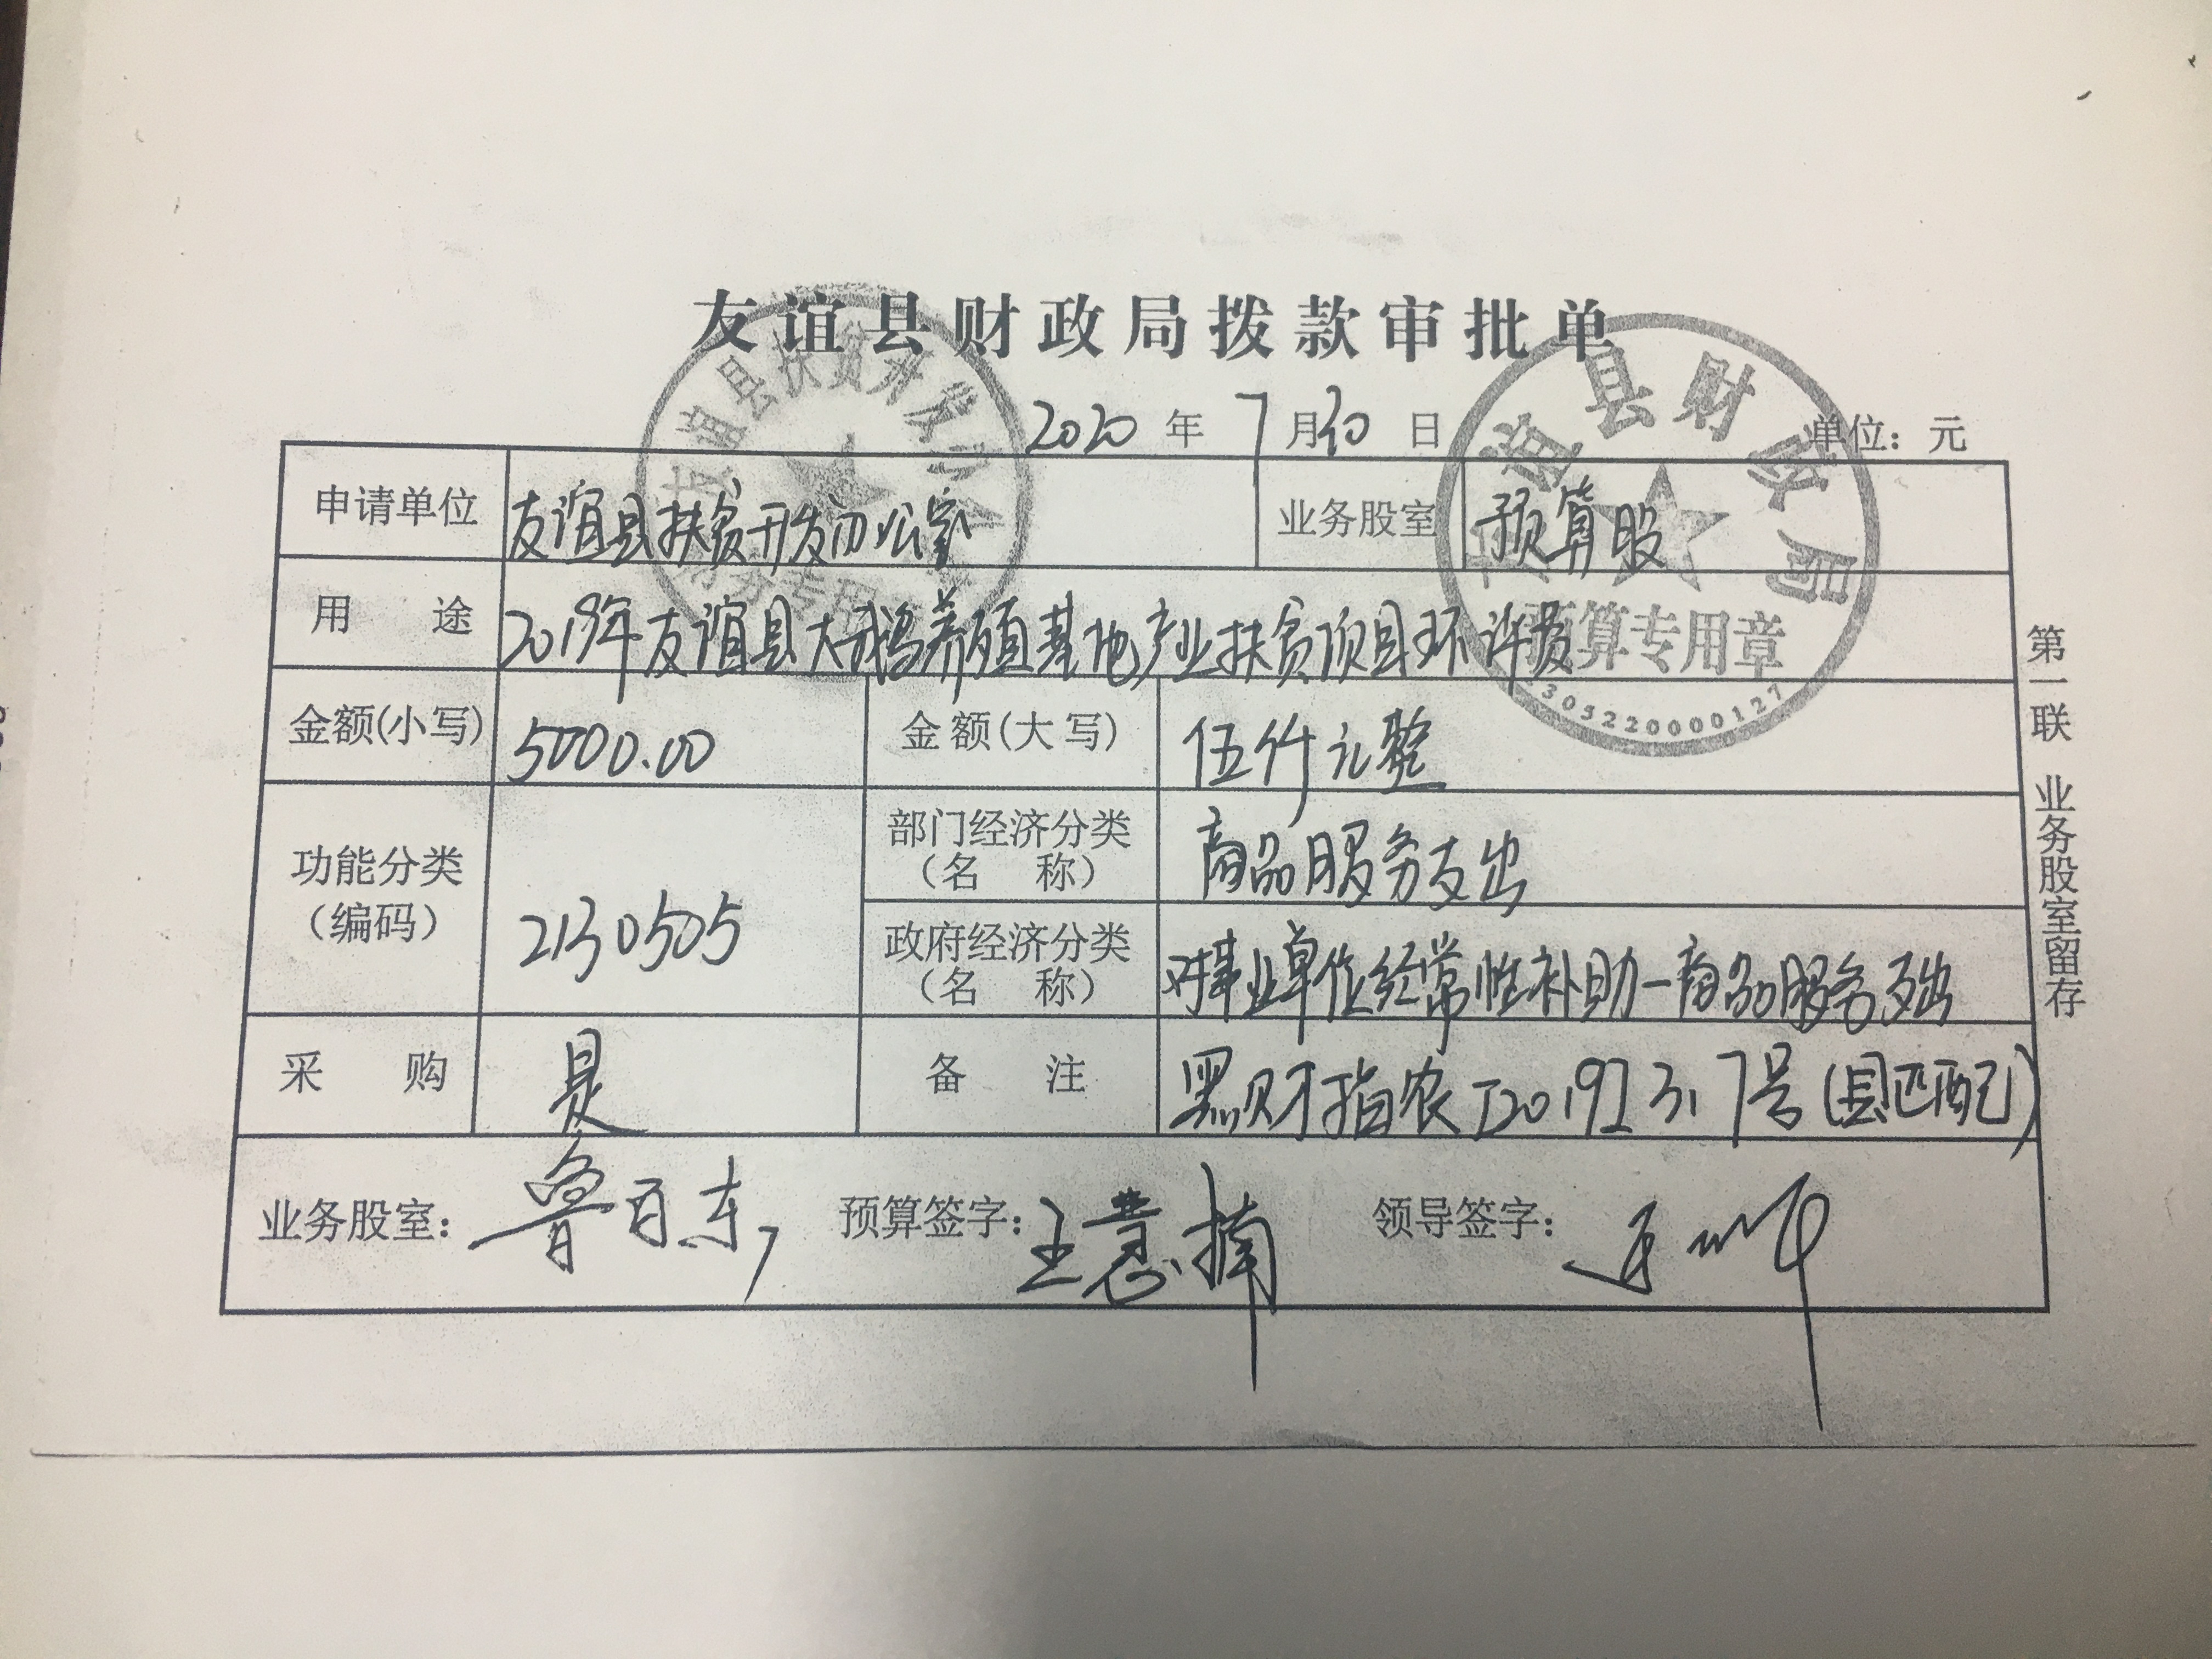 友谊县财政局拨款审批单
2020 年 7 月 30 日 单位：元
申请单位 友谊县扶贫开发办公室 业务股室 预算股
用 途 2019年友谊县大鹅养殖基地产业扶贫项目环评费
金额(小写) 5000.00 金额(大写) 伍仟元整
功能分类（编码） 2130505 部门经济分类（名 称） 商品服务支出
政府经济分类（名 称） 对事业单位经常性补助-商品服务支出
采 购 是 备 注 黑财指农[2019]317号(县匹配)
业务股室： 鲁百东 预算签字： 王慧楠 领导签字：
第一联 业务股室留存
友谊县扶贫开发办公室
财务专用章
友谊县财政局
预算专用章